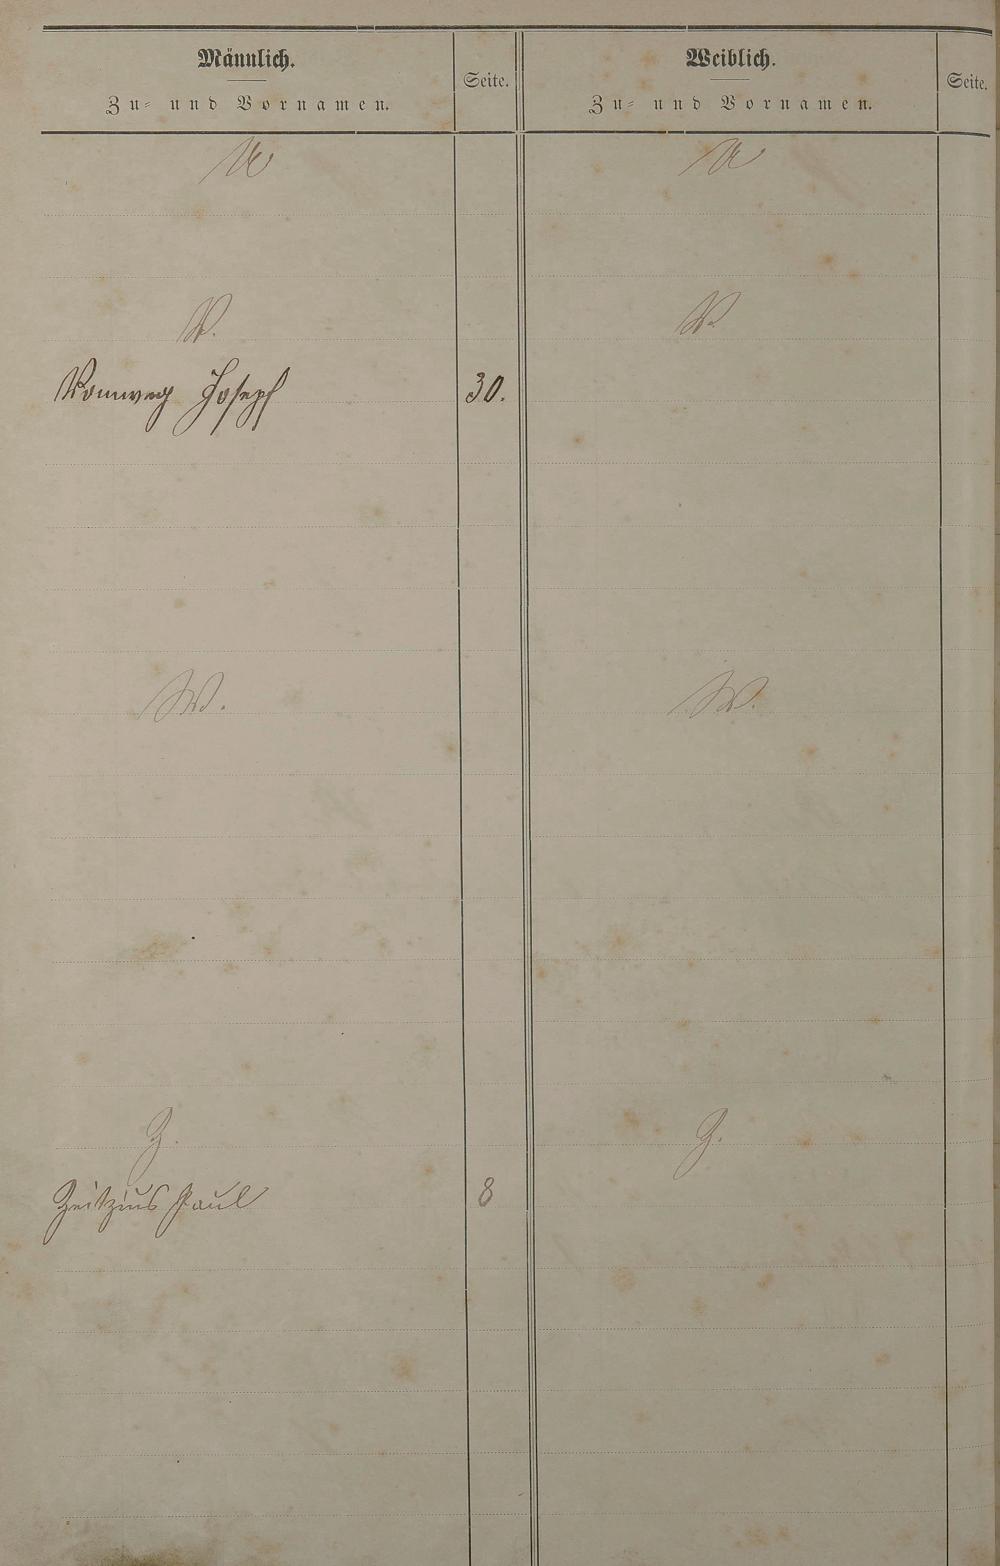 Männlich.
Zu= und Vornamen.
Seite.
Weiblich.
Zu= und Vornamen.
Seite.
U
U
V.
V.
Vomweg Joseph
30.
W.
W.
Z.
Z.
Zeitzius Paul
8